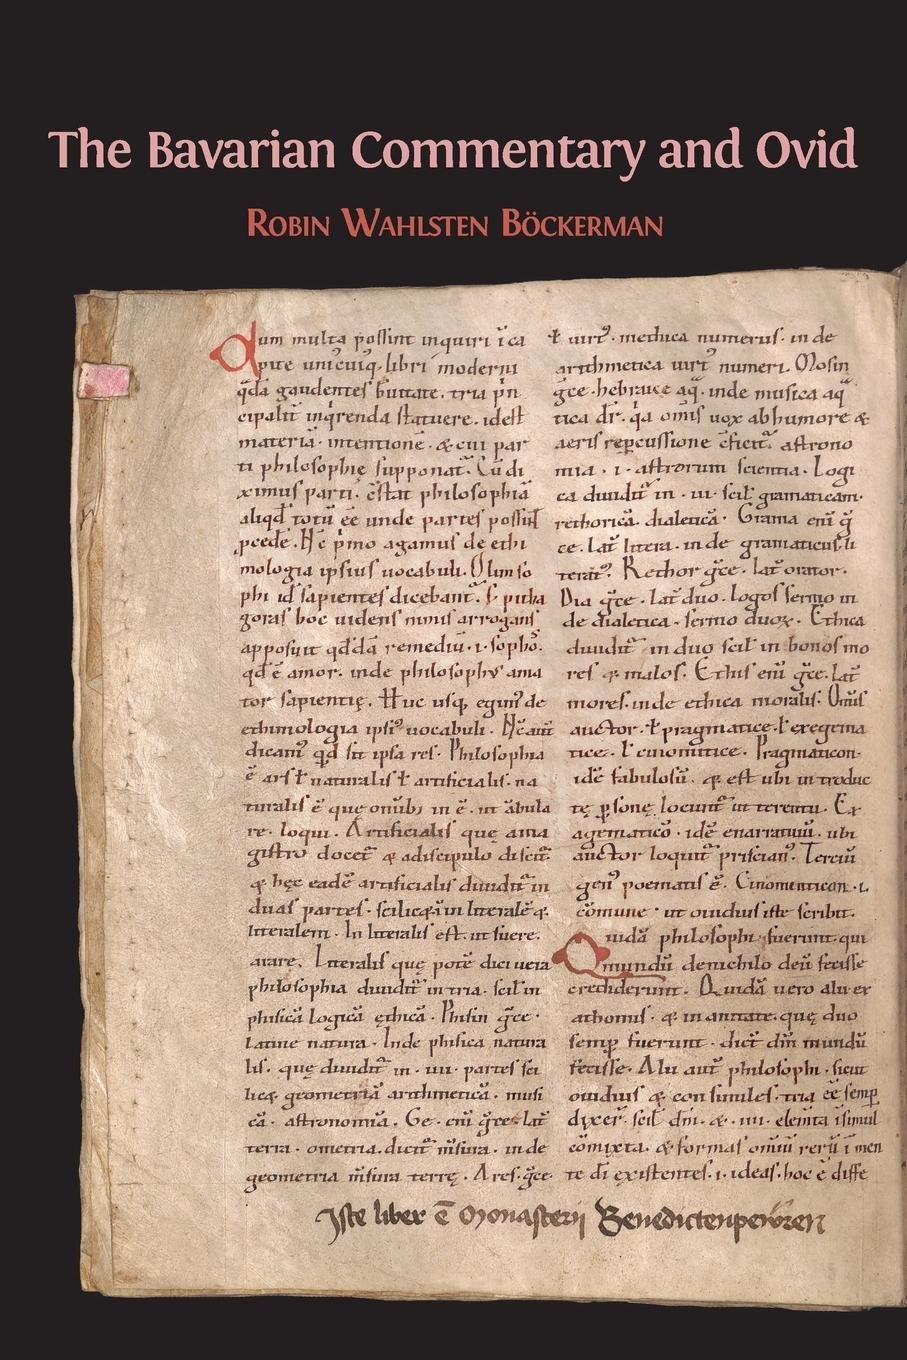 The Bavarian Commentary and Ovid
ROBIN WAHLSTEN BÖCKERMAN
Cum multa possint inquiri ī ca
pite uni cuiq; libri moderni
q̄dā gaudentes breuitate. tria p̄n
cipalit̄ inq̓renda statuere. idest
materiā. intentionē. & cui par
ti philosophię supponat̄. Cū di
ximus parti. c̄stat philosophiā
aliqd̄ totū ēē unde partes possīt
p̱cede. H̄c p̓mo agamus de ethi
mologia ipsius uocabuli. Olim so
phi id sapientes dicebant̄. S; pita
goras hoc uidens nimis arrogans
apposuit qd̄dā remediū. i. sophọ.
qd̄ ē amor. inde philosophꝰ ama
tor sapientię. Huc usq; egimꝰ de
ethimologia ipsiꝰ uocabuli. H̄c aūt
dicamꝰ qd̄ sit ipsa res. Philosophia
ē ars ł naturalis ł artificialis. na
turalis ē que omībꝫ in ē. ut ābula
re. loqui. Artificialis quę a ma
gistro docet̄ & a discipulo discit̄.
& hęc eadē artificialis diuidit̄ in
duas partes. scilic& in literalē &
litteralem. In literalis est. ut suere.
arare. Literalis quę potē dici uera
philosophia diuidit̄ in tria. scil̄ in
phisicā logicā ęthicā. Phisin ḡce.
latine natura. Inde phisica natura
lis. quę diuidit̄ in. iiii. partes sci
lic& geometriā arithmeticā. musi
cā. astronomiā. Ge. eni ḡce lat̄
terra. ometria. dicit̄ m̄sura. inde
geometria m̄sura terrę. Ares. ḡce
ł uirt̄. methica numerus. inde
arithmetica uirt̄ numeri. Mosin
ḡce. hebraice aq̄. inde musica aq̄
tica dr̄. q̓a omis uox ab humore &
aeris repercussione efficit̄. astrono
mia. i. astrorum scientia. Logi
ca diuidit̄ in. iii. scil̄ gramaticam.
rethoricā. dialeticā. Grama eni ḡ
ce. lat̄ litera. inde gramaticus. li
teratꝰ. Rethor ḡce. lat̄ orator.
Dia ḡce. lat̄ duo. logos sermo in
de dialetica. sermo duoꝝ. Ethica
diuidit̄ in duo scil̄ in bonos mo
res & malos. Ethis eni ḡce. lat̄
mores. inde ethica moralis. Omis
auctor. ł pragmatice. ł exegema
tice. ł cinomitice. Pragmaticon.
idē fabulosū. & est ubi introduc
tę p̱sonę locunt̄ ut terentii. Ex
agematicō. idē enarratiuū. ubi
auctor loquit̄ priscianꝰ. Terciū
genꝰ poematis ē. Cinomenticon. i.
cōmune. ut ouidius iste scribit.
Quidā philosophi fuerunt. qui
mundū de nichilo deū fecisse
crediderunt. Quidā uero alii ex
athomis. & inanitate. quę duo
semp̱ fuerunt. dict̄ dm̄ mundū
fecisse. Alii aut̄ philosophi. sicut
ouidius & consimiles. tria ēē semp̱
dixer̄. scil̄ dm̄. &. iiii. elemta ī simul
cōmixta. & formas omiū rerū ī men
te di existentes. i. ideas. hoc ē diffe
Iste liber ē Monasterij Benedictenpewren